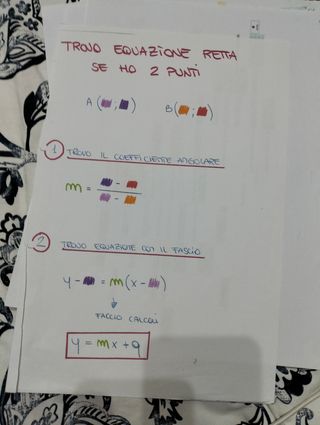 TROVO EQUAZIONE RETTA
SE HO 2 PUNTI
A ( ; ) B ( ; )
1 TROVO IL COEFFICIENTE ANGOLARE
m = - / -
2 TROVO EQUAZIONE CON IL FASCIO
y - = m (x - )
↓
FACCIO CALCOLI
y = mx + q